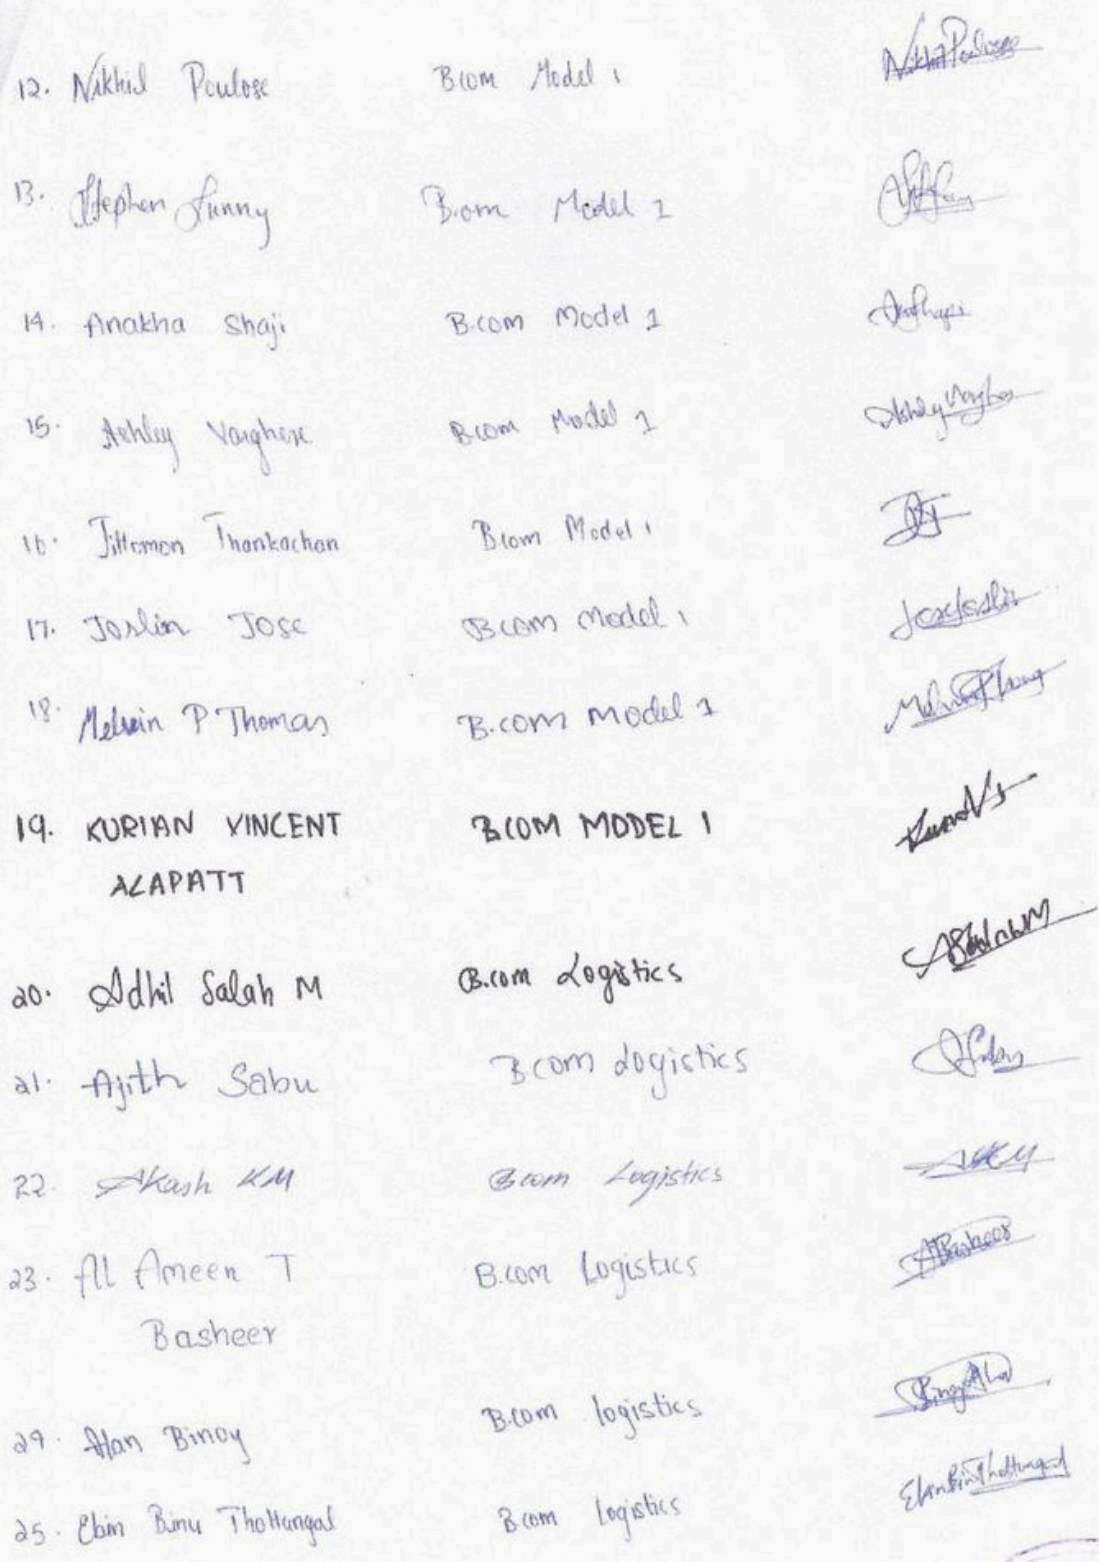 12. Nikhil Poulose Bcom Model 1 Nikhil Poulose
13. Stephen Sunny B.com Model 1
14. Anakha Shaji B.com Model 1
15. Ashley Varghese Bcom Model 1 Ashley Varghese
16. Jittomon Thankachan Bcom Model 1
17. Joslin Jose Bcom Model 1
18. Melvin P Thomas B.com Model 1
19. KURIAN VINCENT BCOM MODEL 1
ALAPATT
20. Adhil Salah M B.com Logistics
21. Ajith Sabu Bcom Logistics
22. Akash KM Bcom Logistics
23. Al Ameen T B.com Logistics ABasheer
Basheer
24. Alan Binoy B.com logistics
25. Ebin Binu Thottungal Bcom logistics Ebin Binu Thottungal